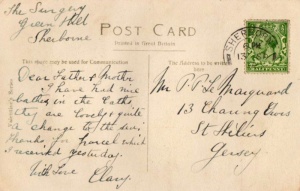 The Surgery
Green Hill
Sherborne
POST CARD
Printed in Great Britain
This space may be used for Communication
The Address to be written here
SHERBORNE
HALFPENNY
Dear Father & Mother
I have tried mix
bathing in the Baths
they are lovely quite
a change to the sea.
thanks for parcel which
I received yesterday.
With Love
Clary
Mr P. L. Marquand
13 Charing Cross
St Heliers
Jersey